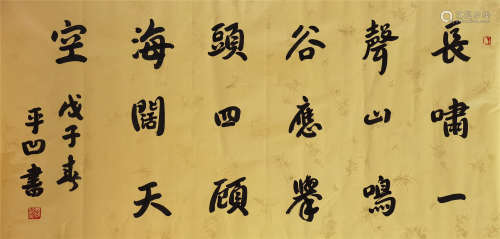 長嘯一
聲山鳴
谷應舉
頭四顧
海闊天
空
戊子春
平凹書